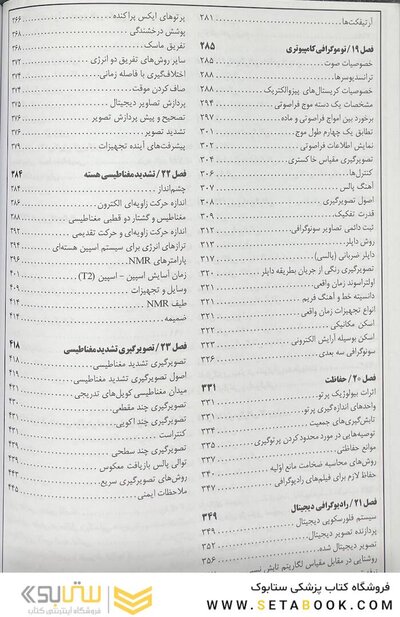 آرتیفکت‌ها ۲۸۱
فصل ۱۹ / توموگرافی کامپیوتری ۲۸۵
خصوصیات صوت ۲۸۵
ترانسدیوسرها ۲۸۸
خصوصیات کریستال‌های پیزوالکتریک ۲۸۸
مشخصات یک دسته موج فراصوتی ۲۹۴
برخورد بین امواج فراصوتی و ماده ۲۹۷
تطابق یک چهارم طول موج ۳۰۱
نمایش اطلاعات فراصوتی ۳۰۲
تصویرگیری مقیاس خاکستری ۳۰۴
کنترل‌ها ۳۰۶
آهنگ پالس ۳۰۷
اصول تصویرگیری ۳۰۸
قدرت تفکیک ۳۰۹
ثبت دائمی تصاویر سونوگرافی ۳۱۲
روش داپلر ۳۱۲
داپلر ضربانی (پالسی) ۳۱۷
تصویرگیری رنگی از جریان بطریقه داپلر ۳۲۰
اولتراسوند زمان واقعی ۳۲۱
دانسیته خط و آهنگ فریم ۳۲۱
انواع تجهیزات زمان واقعی ۳۲۱
اسکن مکانیکی ۳۲۲
اسکن بوسیله آرایش الکترونی ۳۲۳
سونوگرافی سه بعدی ۳۲۶
فصل ۲۰ / حفاظت ۳۳۱
اثرات بیولوژیک پرتو ۳۳۱
واحدهای اندازه‌گیری پرتو ۳۳۱
تابش‌گیری‌های جمعیت ۳۳۴
توصیه‌هایی در مورد محدود کردن پرتوگیری ۳۳۵
موانع حفاظتی ۳۳۷
روش‌های محاسبه ضخامت مانع اولیه ۳۴۰
حفاظ لازم برای فیلم‌های رادیوگرافی ۳۴۷
فصل ۲۱ / رادیوگرافی دیجیتال ۳۴۹
سیستم فلورسکوپی دیجیتال ۳۴۹
پردازنده تصویر دیجیتال ۳۵۲
تصویر دیجیتال شده ۳۵۶
روشنایی در مقابل مقیاس لگاریتم تابش
پرتوهای ایکس پراکنده ۳۶۶
پوشش درخشندگی ۳۶۸
تفریق ماسک ۳۶۸
سایر روش‌های تفریق دو انرژی ۳۷۲
اختلاف‌گیری با فاصله زمانی ۳۷۴
صاف کردن موقت ۳۷۴
پردازش تصاویر دیجیتال ۳۷۵
تصحیح و پیش پردازش تصویر ۳۷۶
تشدید تصویر ۳۷۶
پیشرفت‌های آینده تجهیزات ۳۷۹
فصل ۲۲ / تشدید مغناطیسی هسته ۳۸۴
چشم‌انداز ۳۸۴
اندازه حرکت زاویه‌ای الکترون ۳۸۶
مغناطیس و گشتاور دو قطبی مغناطیسی ۳۸۸
اندازه حرکت زاویه‌ای و حرکت تقدیمی ۳۹۲
ترازهای انرژی برای سیستم اسپین هسته‌ای ۳۹۴
پارامترهای NMR ۳۹۶
زمان آسایش اسپین – اسپین (T2) ۴۰۱
وسایل و تجهیزات ۴۰۹
طیف NMR ۴۱۴
ضمیمه ۴۱۴
فصل ۲۳ / تصویرگیری تشدید مغناطیسی ۴۱۸
تصویرگیری تشدید مغناطیسی
اصول تصویرگیری تشدید مغناطیسی
میدان مغناطیسی کویل‌های تدریجی ۴۲۱
تصویرگیری چند مقطعی
تصویرگیری چند اکویی
کنتراست ۴۳۱
تصویرگیری چند سطحی ۴۳۹
توالی پالس بازیافت معکوس
روش‌های تصویرگیری سریع ۴۴۳
ملاحظات ایمنی ۴۴۵
فروشگاه کتاب پزشکی ستابوک
WWW.SETABOOK.COM
ستابوک
فروشگاه اینترنتی کتاب